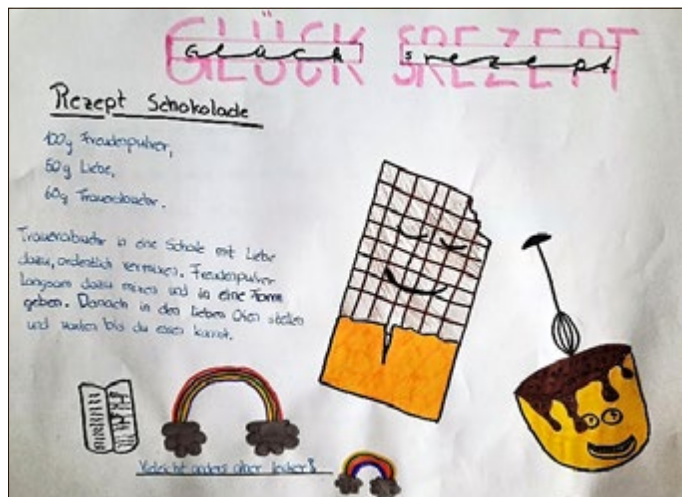 GLÜCKSREZEPT
Glücksrezept
Rezept Schokolade
100g Freudenpulver,
50g Liebe,
60g
in eine Schale mit Liebe
dazu, ordentlich vermixen. Freudenpulver
langsam dazu mixen und in eine Form
geben. Danach in den lieben Ofen stellen
und warten bis du essen kannst.
Vieleicht anders aber lecker!